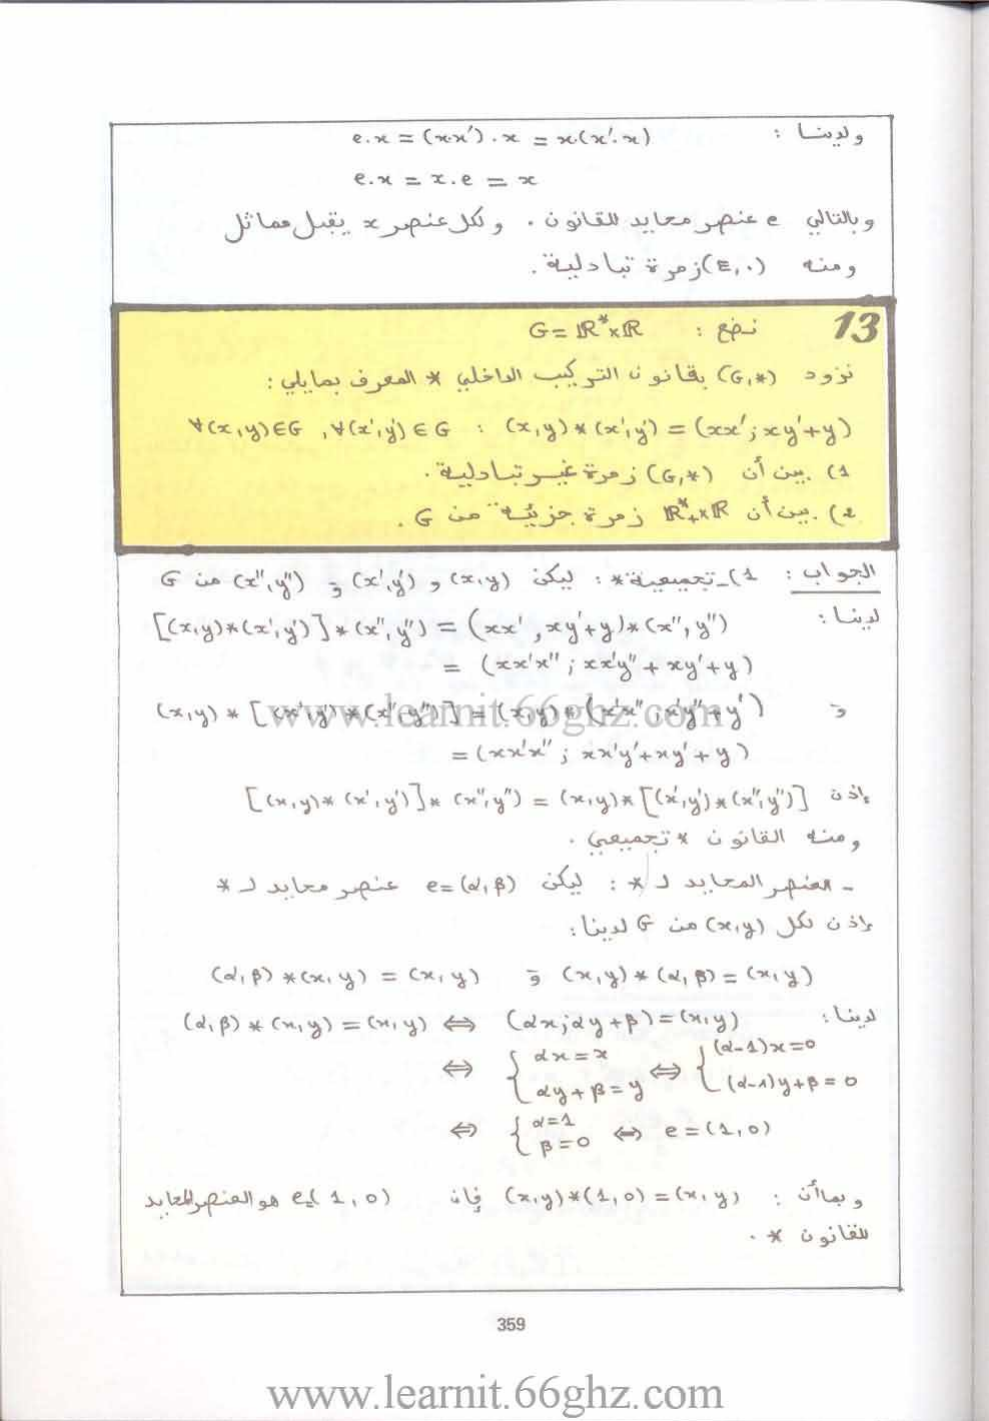 ولدينا : e.x = (x.x').x = x.(x'.x)
e.x = x.e = x
وبالتالي e عنصر محايد للقانون . و لكل عنصر x يقبل مماثل
ومنه (E, .) زمرة تبادلية .
13 نضع : G = ℝ*×ℝ
نزود (G,*) بقانون التركيب الداخلي * المعرف بمايلي :
∀(x,y)∈G , ∀(x',y')∈G : (x,y)*(x',y') = (xx' ; xy'+y)
1) بين أن (G,*) زمرة غير تبادلية .
2) بين أن ℝ*₊×ℝ زمرة جزئية من G .
الجواب : 1)_ تجميعية * : ليكن (x,y) و (x',y') و (x'',y'') من G
لدينا : [(x,y)*(x',y')]*(x'',y'') = (xx' , xy'+y)*(x'',y'')
= (xx'x'' ; xx'y''+xy'+y)
و (x,y)*[(x',y')*(x'',y'')] = (x,y)*(x'x'', x'y''+y')
www.learnit.66ghz.com
= (xx'x'' ; xx'y'+xy'+y)
إذن [(x,y)*(x',y')]*(x'',y'') = (x,y)*[(x',y')*(x'',y'')]
ومنه القانون * تجميعي .
- العنصر المحايد لـ * : ليكن e=(α,β) عنصر محايد لـ *
إذن لكل (x,y) من G لدينا :
(x,y)*(α,β) = (x,y) و (α,β)*(x,y) = (x,y)
لدينا : (α,β)*(x,y) = (x,y) ⇔ (αx ; αy+β) = (x,y)
⇔ { αx = x ; αy+β = y ⇔ { (α-1)x = 0 ; (α-1)y+β = 0
⇔ { α=1 ; β=0 ⇔ e = (1,0)
وبما أن : (x,y)*(1,0) = (x,y) فإن e(1,0) هو العنصر المحايد
للقانون * .
359
www.learnit.66ghz.com